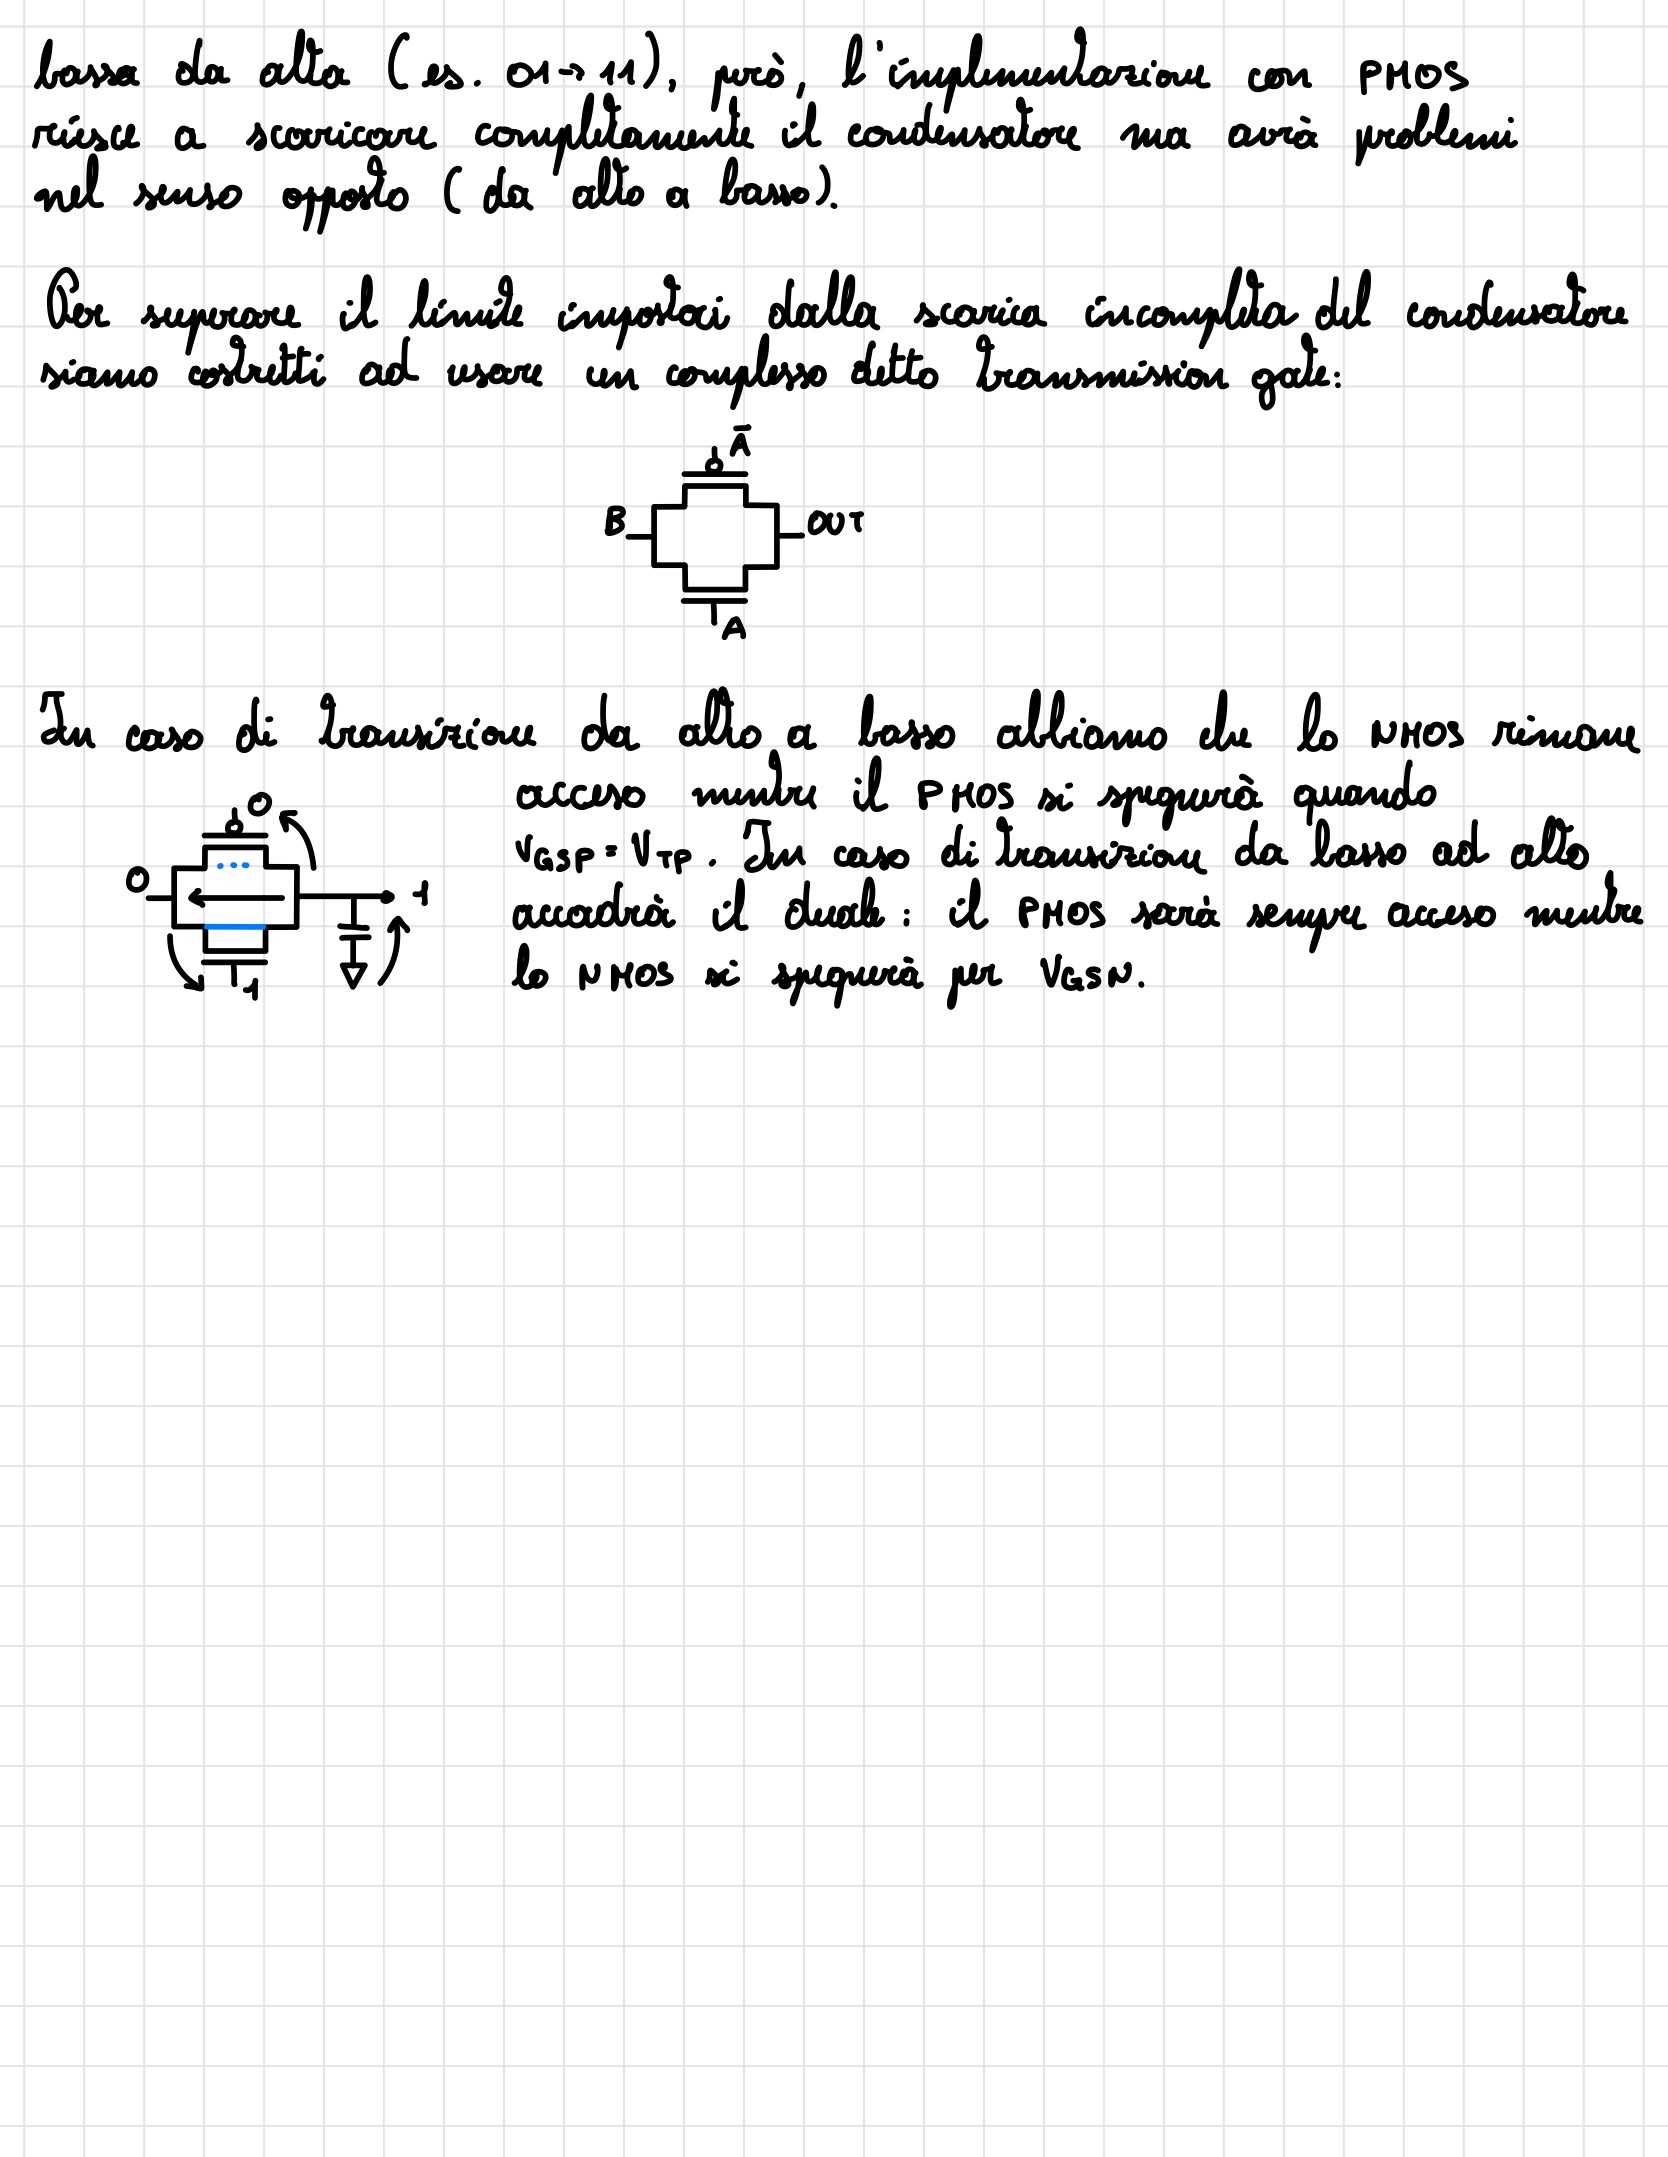 bassa da alta (es. 01→11), però, l'implementazione con PMOS
riesce a scaricare completamente il condensatore ma avrà problemi
nel senso opposto (da alto a basso).
Per superare il limite impostoci dalla scarica incompleta del condensatore
siamo costretti ad usare un complesso detto transmission gate:
Ā
B
OUT
A
In caso di transizione da alto a basso abbiamo che lo NMOS rimane
acceso mentre il PMOS si spegnerà quando
VGSP = VTP. In caso di transizione da basso ad alto
accadrà il duale: il PMOS sarà sempre acceso mentre
lo NMOS si spegnerà per VGSN.
0
0
1
1